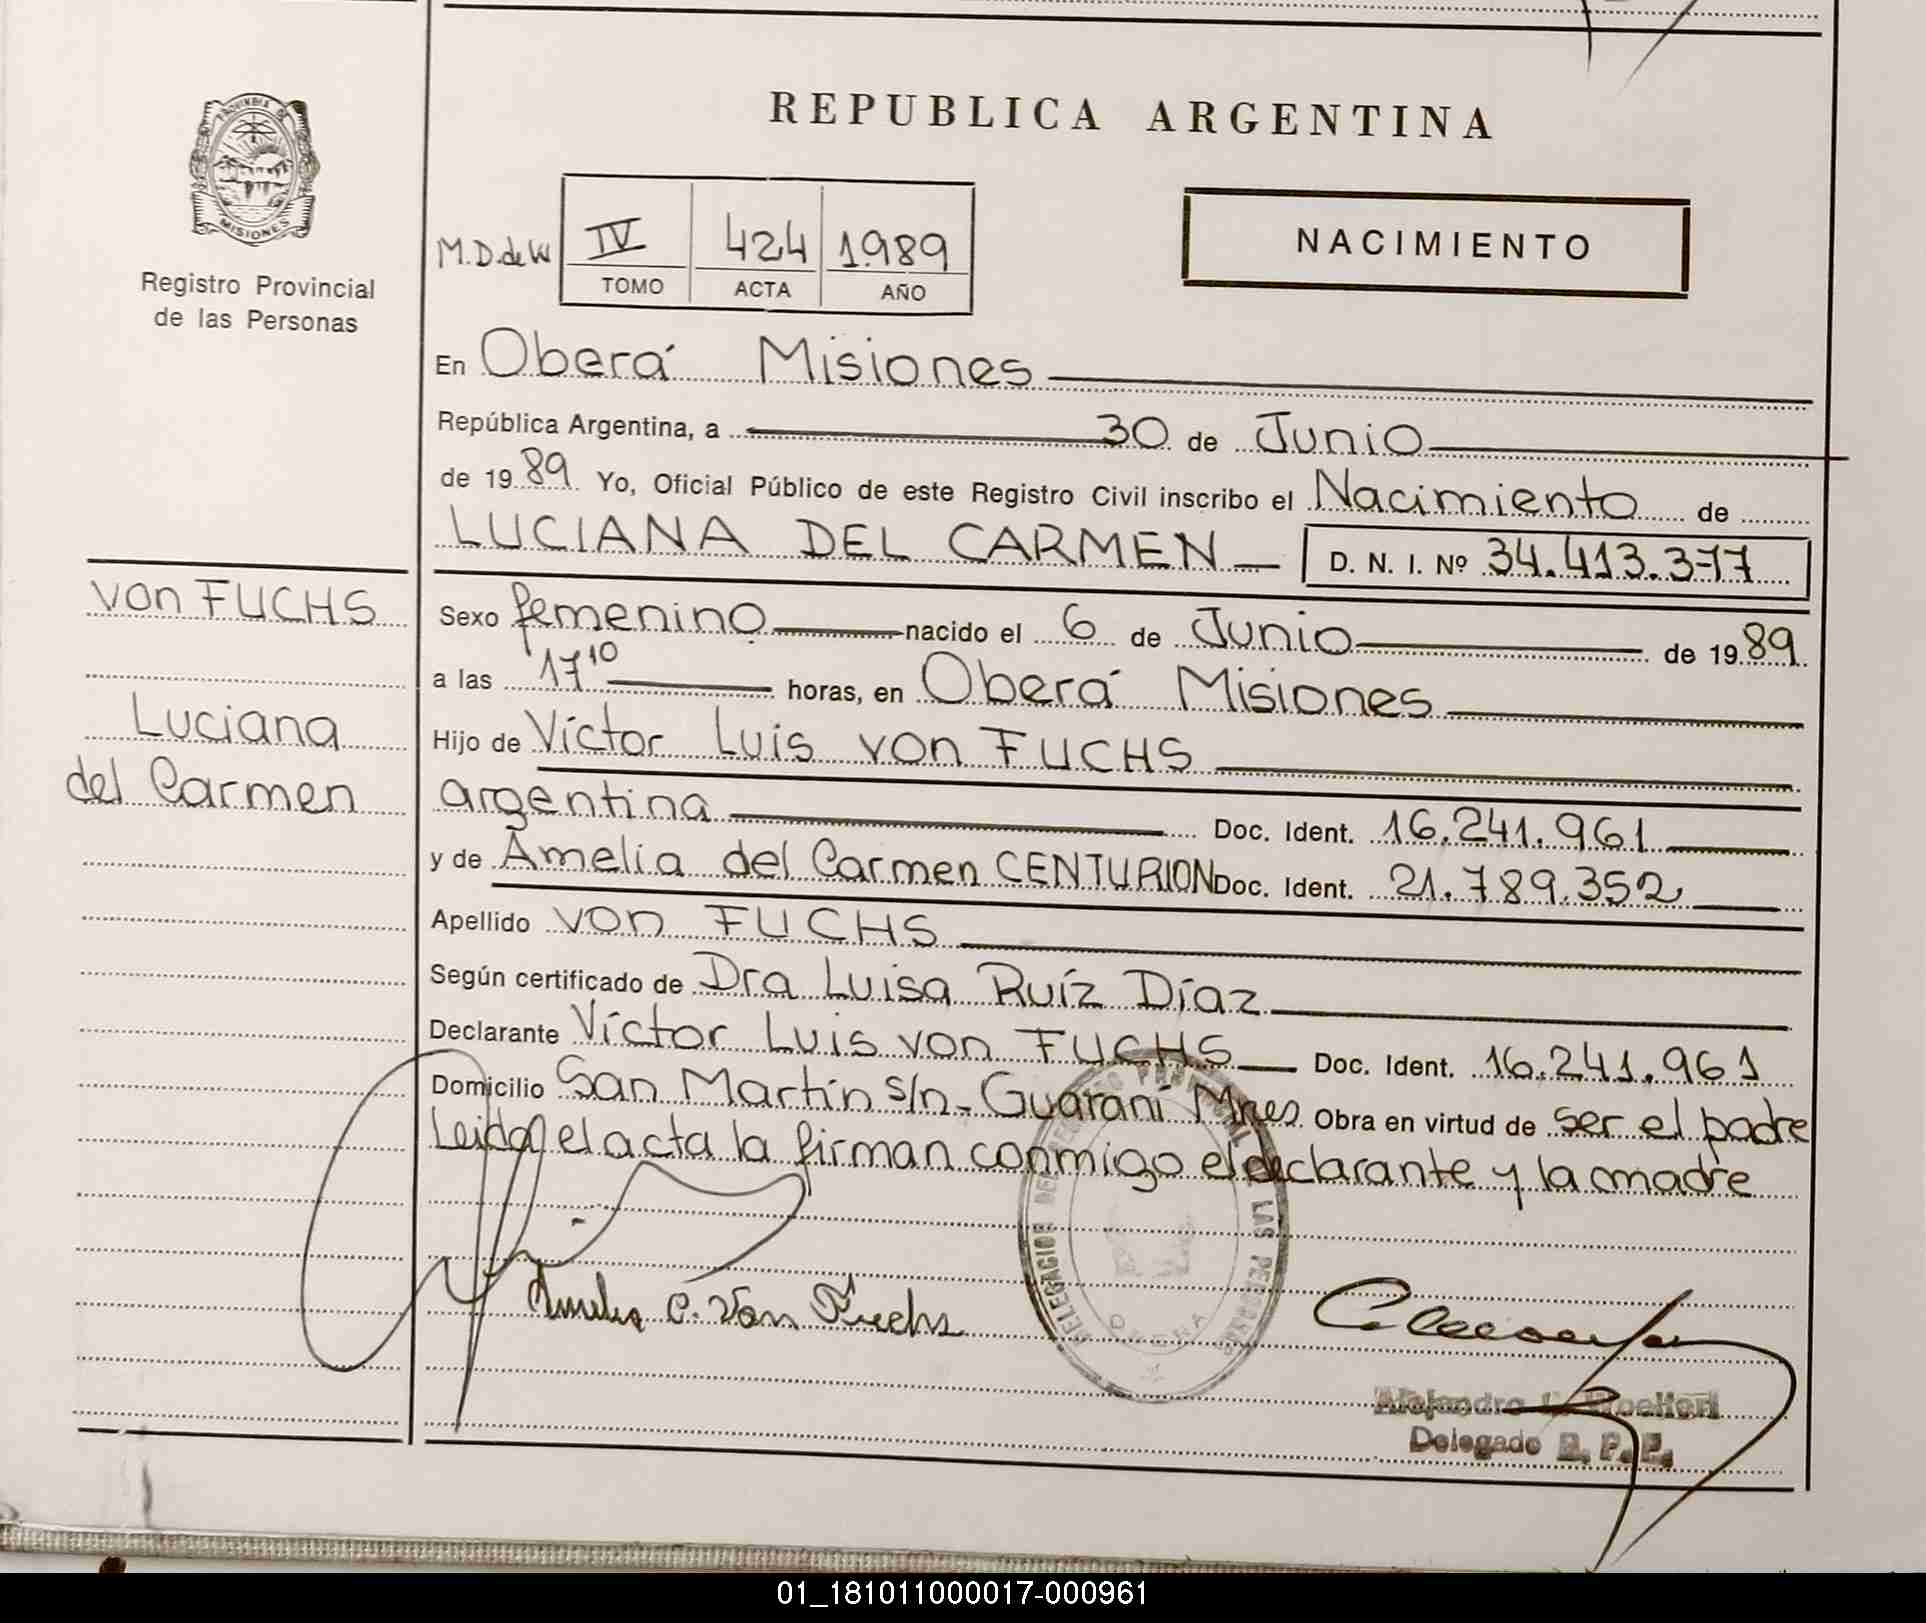 REPUBLICA ARGENTINA
PROVINCIA DE
MISIONES
Registro Provincial
de las Personas
M.D.de W
IV 424 1989
TOMO ACTA AÑO
NACIMIENTO
En Oberá Misiones
República Argentina, a 30 de Junio
de 1989 Yo, Oficial Público de este Registro Civil inscribo el Nacimiento de
LUCIANA DEL CARMEN D. N. I. Nº 34.413.377
von FUCHS
Luciana
del Carmen
Sexo femenino nacido el 6 de Junio de 1989
a las 17 10 horas, en Oberá Misiones
Hijo de Víctor Luis von FUCHS
argentina Doc. Ident. 16.241.961
y de Amelia del Carmen CENTURION Doc. Ident. 21.789.352
Apellido von FUCHS
Según certificado de Dra Luisa Ruíz Díaz
Declarante Víctor Luis von FUCHS Doc. Ident. 16.241.961
Domicilio San Martín s/n- Guaraní Mnes Obra en virtud de ser el padre
Leida el acta la firman conmigo el declarante y la madre
DELEGACION DEL REGISTRO PROVINCIAL DE LAS PERSONAS
OBERA
Amelia C. Von Fuchs
Alejandro
Delegado R. P. P.
01_181011000017-000961